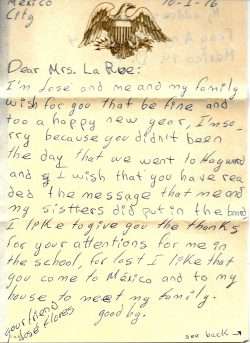 México
City
10-I-76
Dear Mrs. La Ree:
I'm Jose and me and my family
wish for you that be fine and
too a happy new year, I'm so
rry because you didn't been
the day that we went to Hayward
and I wish that you have rea
ded the message that me and
my sistters did put in the board
I like to give you the thanks
for your attentions for me in
the school, for last I like that
you come to México and to my
house to meet my family.
your friend
José Flores
goodby.
see back →